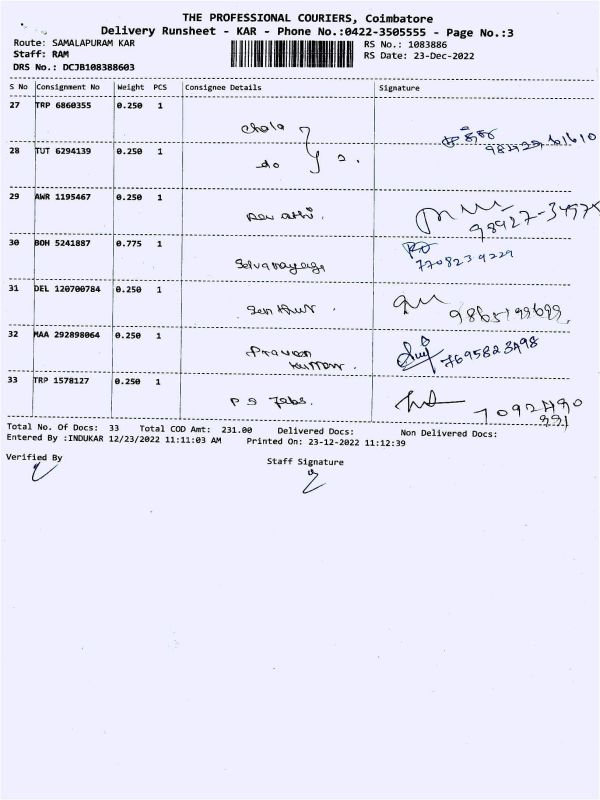 THE PROFESSIONAL COURIERS, Coimbatore
Delivery Runsheet - KAR - Phone No.:0422-3505555 - Page No.:3
Route: SAMALAPURAM KAR RS No.: 1083886
Staff: RAM RS Date: 23-Dec-2022
DRS No.: DCJB108388603
S No Consignment No Weight PCS Consignee Details Signature
27 TRP 6860355 0.250 1
chola
28 TUT 6294139 0.250 1
do 2.
29 AWR 1195467 0.250 1
98927-34975
30 BOH 5241887 0.775 1
Selvanayagi 7708239229
31 DEL 120700784 0.250 1
9865199699.
32 MAA 292898064 0.250 1
Praveen 7695823498
kumar.
33 TRP 1578127 0.250 1
P S
Total No. Of Docs: 33 Total COD Amt: 231.00 Delivered Docs: Non Delivered Docs:
Entered By :INDUKAR 12/23/2022 11:11:03 AM Printed On: 23-12-2022 11:12:39
Verified By Staff Signature